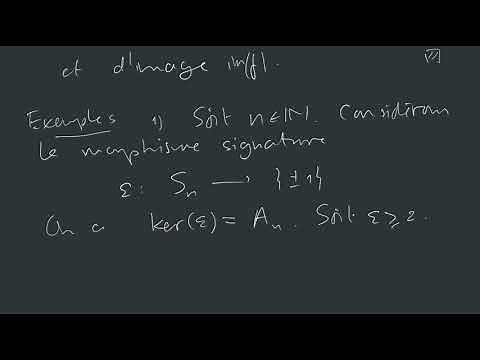 et d'image im(f).
Exemples 1) Soit n ∈ ℕ. Considérons
le morphisme signature
ε: Sₙ ⟶ {±1}
On a ker(ε) = Aₙ. Soit ε ⩾ 2.